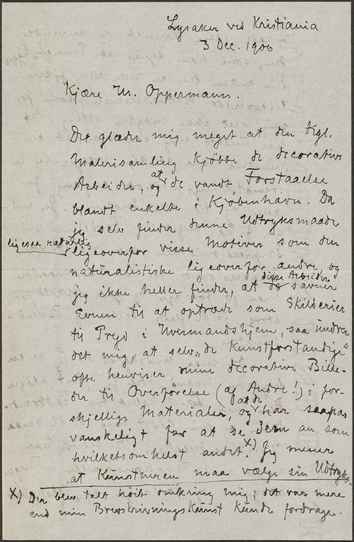 Lysaker ved Kristiania
3 Dec. 1900
Kjære Hr. Oppermann.
Det glæder mig meget at den kgl.
Malerisamling kjøbte de decorative
Arbeider, og at de vandt Forstaaelse
blandt enkelte i Kjøbenhavn. Da
jeg selv finder denne Udtryksmaade
ligesaa naturlig
ligeoverfor visse Motiver som den
naturalistiske ligeoverfor andre og
jeg ikke heller finder, at disse Arbeider savner
Evnen til at optræde som Skilderier
til Pryd i Hvermandshjem, saa undrer
det mig, at selv "de Kunstforstandige"
ofte henviser mine decorative Bille-
der til Overførelse (af Andre!) i for-
skjellige Materialer, og har saapas
vanskeligt for at se dem an som
hvilketsomhelst andet. X) Jeg mener
at Kunstneren maa vælge sin Udtryks-
X) Der blev talt høit omkring mig; det var mere
end min Brevskrivningskunst kunde fordrage.